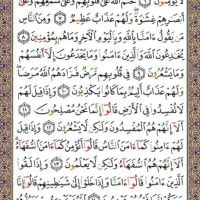 لَا يُؤْمِنُونَ ٦ خَتَمَ ٱللَّهُ عَلَىٰ قُلُوبِهِمْ وَعَلَىٰ سَمْعِهِمْ وَعَلَىٰٓ
أَبْصَٰرِهِمْ غِشَٰوَةٌ وَلَهُمْ عَذَابٌ عَظِيمٌ ٧ وَمِنَ ٱلنَّاسِ
مَن يَقُولُ ءَامَنَّا بِٱللَّهِ وَبِٱلْيَوْمِ ٱلْءَاخِرِ وَمَا هُم بِمُؤْمِنِينَ ٨
يُخَٰدِعُونَ ٱللَّهَ وَٱلَّذِينَ ءَامَنُوا۟ وَمَا يَخْدَعُونَ إِلَّآ أَنفُسَهُمْ
وَمَا يَشْعُرُونَ ٩ فِى قُلُوبِهِم مَّرَضٌ فَزَادَهُمُ ٱللَّهُ مَرَضًا
وَلَهُمْ عَذَابٌ أَلِيمٌۢ بِمَا كَانُوا۟ يَكْذِبُونَ ١٠ وَإِذَا قِيلَ لَهُمْ
لَا تُفْسِدُوا۟ فِى ٱلْأَرْضِ قَالُوٓا۟ إِنَّمَا نَحْنُ مُصْلِحُونَ ١١
أَلَآ إِنَّهُمْ هُمُ ٱلْمُفْسِدُونَ وَلَٰكِن لَّا يَشْعُرُونَ ١٢ وَإِذَا قِيلَ
لَهُمْ ءَامِنُوا۟ كَمَآ ءَامَنَ ٱلنَّاسُ قَالُوٓا۟ أَنُؤْمِنُ كَمَآ ءَامَنَ ٱلسُّفَهَآءُ
أَلَآ إِنَّهُمْ هُمُ ٱلسُّفَهَآءُ وَلَٰكِن لَّا يَعْلَمُونَ ١٣ وَإِذَا لَقُوا۟
ٱلَّذِينَ ءَامَنُوا۟ قَالُوٓا۟ ءَامَنَّا وَإِذَا خَلَوْا۟ إِلَىٰ شَيَٰطِينِهِمْ قَالُوٓا۟